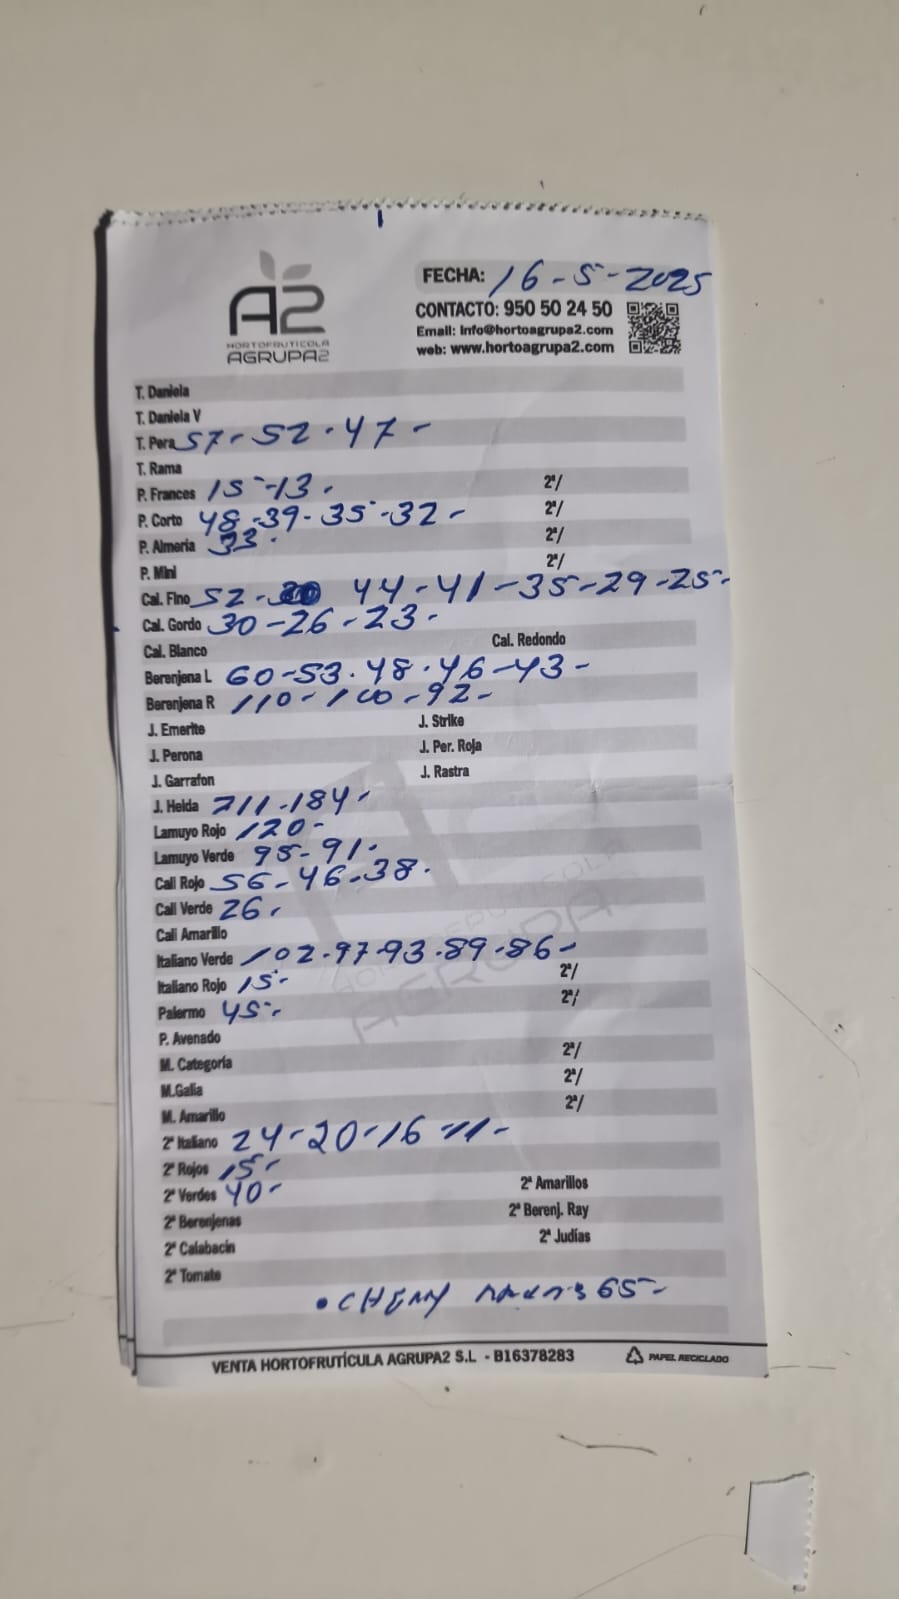 FECHA: 16-5-2025
A2
HORTOFRUTICOLA
AGRUPA2
CONTACTO: 950 50 24 50
Email: info@hortoagrupa2.com
web: www.hortoagrupa2.com
T. Daniela
T. Daniela V
T. Pera 57-52-47-
T. Rama
P. Frances 15-13. 2ª/
P. Corto 48-39-35-32- 2ª/
P. Almeria 33. 2ª/
P. Mini 2ª/
Cal. Fino 52- 44-41-35-29-25-
Cal. Gordo 30-26-23-
Cal. Blanco Cal. Redondo
Berenjena L 60-53.48.46-43-
Berenjena R 110-100-92-
J. Emerite J. Strike
J. Perona J. Per. Roja
J. Garrafon J. Rastra
J. Helda 211-184-
Lamuyo Rojo 120-
Lamuyo Verde 95-91.
Cali Rojo 56-46-38.
Cali Verde 26.
Cali Amarillo
Italiano Verde 102-97-93.89-86-
Italiano Rojo 15- 2ª/
Palermo 45- 2ª/
P. Avenado
M. Categoría 2ª/
M.Galia 2ª/
M. Amarillo 2ª/
2ª Italiano 24-20-16-11-
2ª Rojos 15-
2ª Verdes 40- 2ª Amarillos
2ª Berenjenas 2ª Berenj. Ray
2ª Calabacin 2ª Judías
2ª Tomate
• CHERRY 65-
VENTA HORTOFRUTÍCULA AGRUPA2 S.L - B16378283 PAPEL RECICLADO